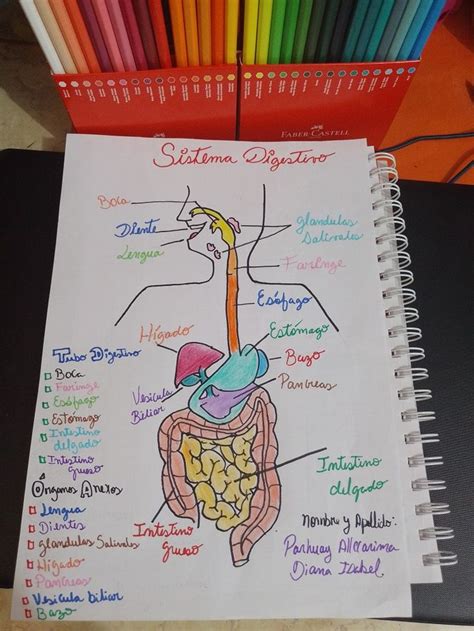 FABER-CASTELL
Sistema Digestivo
Boca
Diente
Lengua
glandulas
Salivales
Faringe
Esófago
Hígado
Estómago
Bazo
Pancreas
Vesicula
Biliar
Tubo Digestivo
Boca
Faringe
Esófago
Estomago
Intestino
delgado
Intestino
grueso
Órganos Anexos
Lengua
Dientes
glandulas Salivales
Hígado
Pancreas
Vesicula biliar
Bazo
Intestino
grueso
Intestino
delgado
Nombre y Apellido:
Diana Isabel